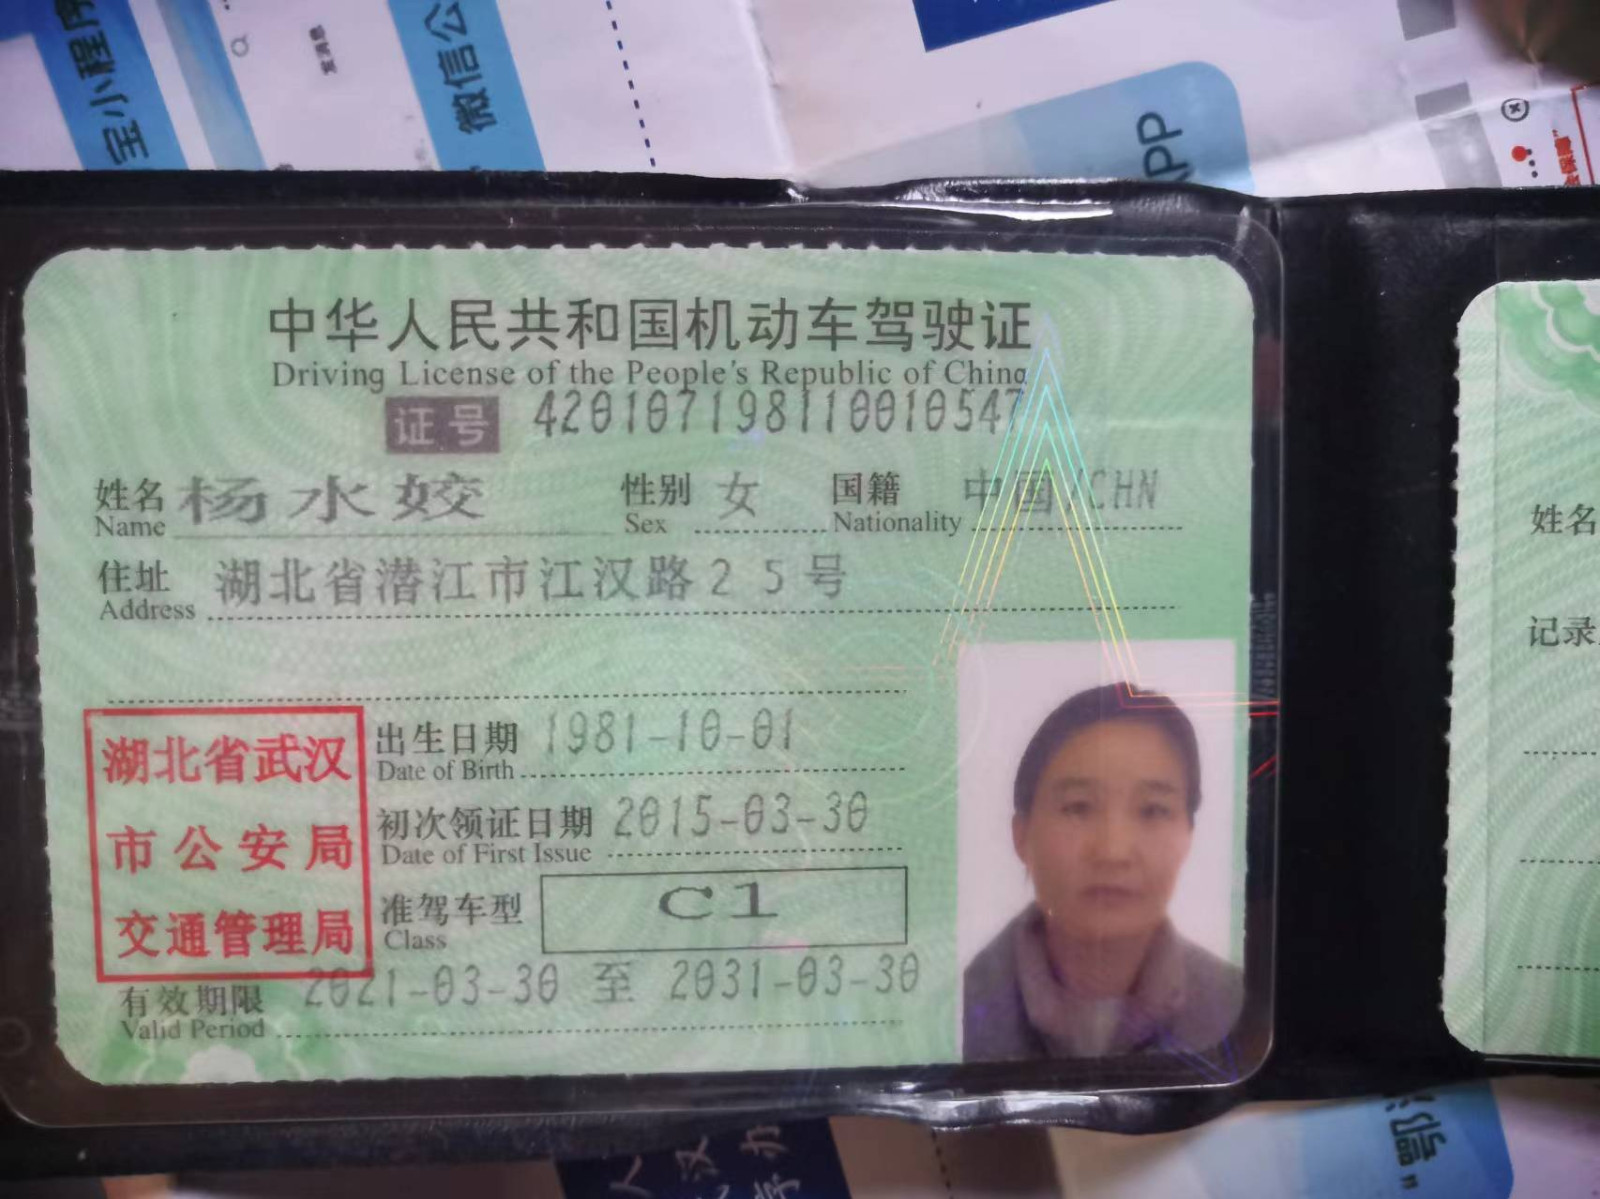 宝小程序
发消息
微信公
APP
中华人民共和国机动车驾驶证
Driving License of the People's Republic of China
证号 420107198110010547
姓名 杨水姣 性别 女 国籍 中国/CHN
Name Sex Nationality
住址 湖北省潜江市江汉路25号
Address
湖北省武汉
市公安局
交通管理局
出生日期 1981-10-01
Date of Birth
初次领证日期 2015-03-30
Date of First Issue
准驾车型 C1
Class
有效期限 2021-03-30 至 2031-03-30
Valid Period
姓名
记录